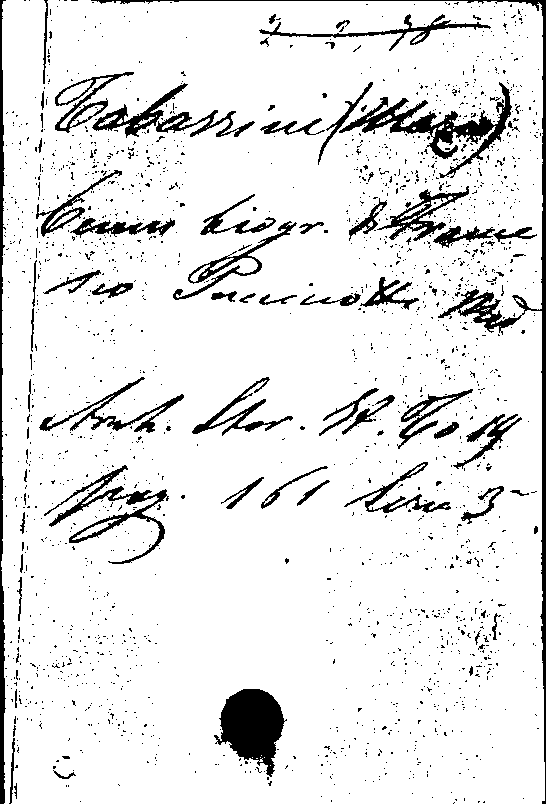 2. 2. 78
Tabassini (Marco)
Cenni biogr. di France
sco Puccinotti Med
Arch. Stor. It. To 19
pag. 161 Serie 3ª